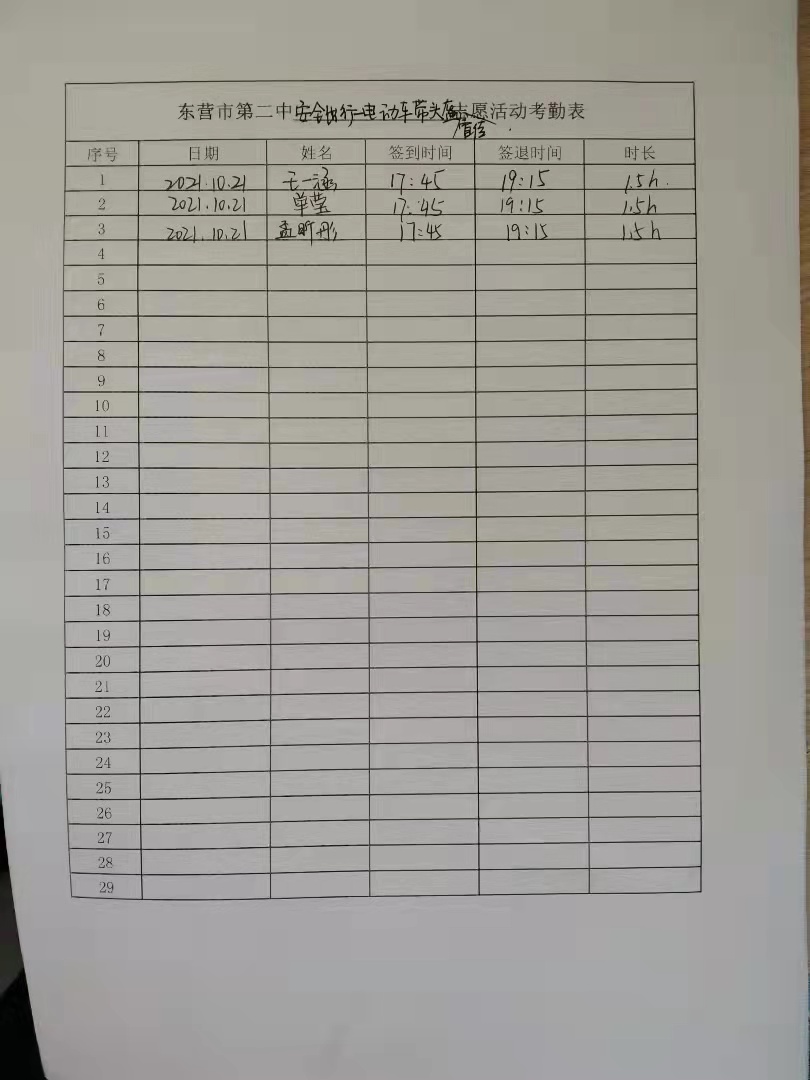 东营市第二中安全出行-电动车带头盔志愿活动考勤表
宣传
序号 日期 姓名 签到时间 签退时间 时长
1 2021.10.21 王一涵 17:45 19:15 1.5h.
2 2021.10.21 单莹 17:45 19:15 1.5h
3 2021.10.21 孟昕彤 17:45 19:15 1.5h
4
5
6
7
8
9
10
11
12
13
14
15
16
17
18
19
20
21
22
23
24
25
26
27
28
29